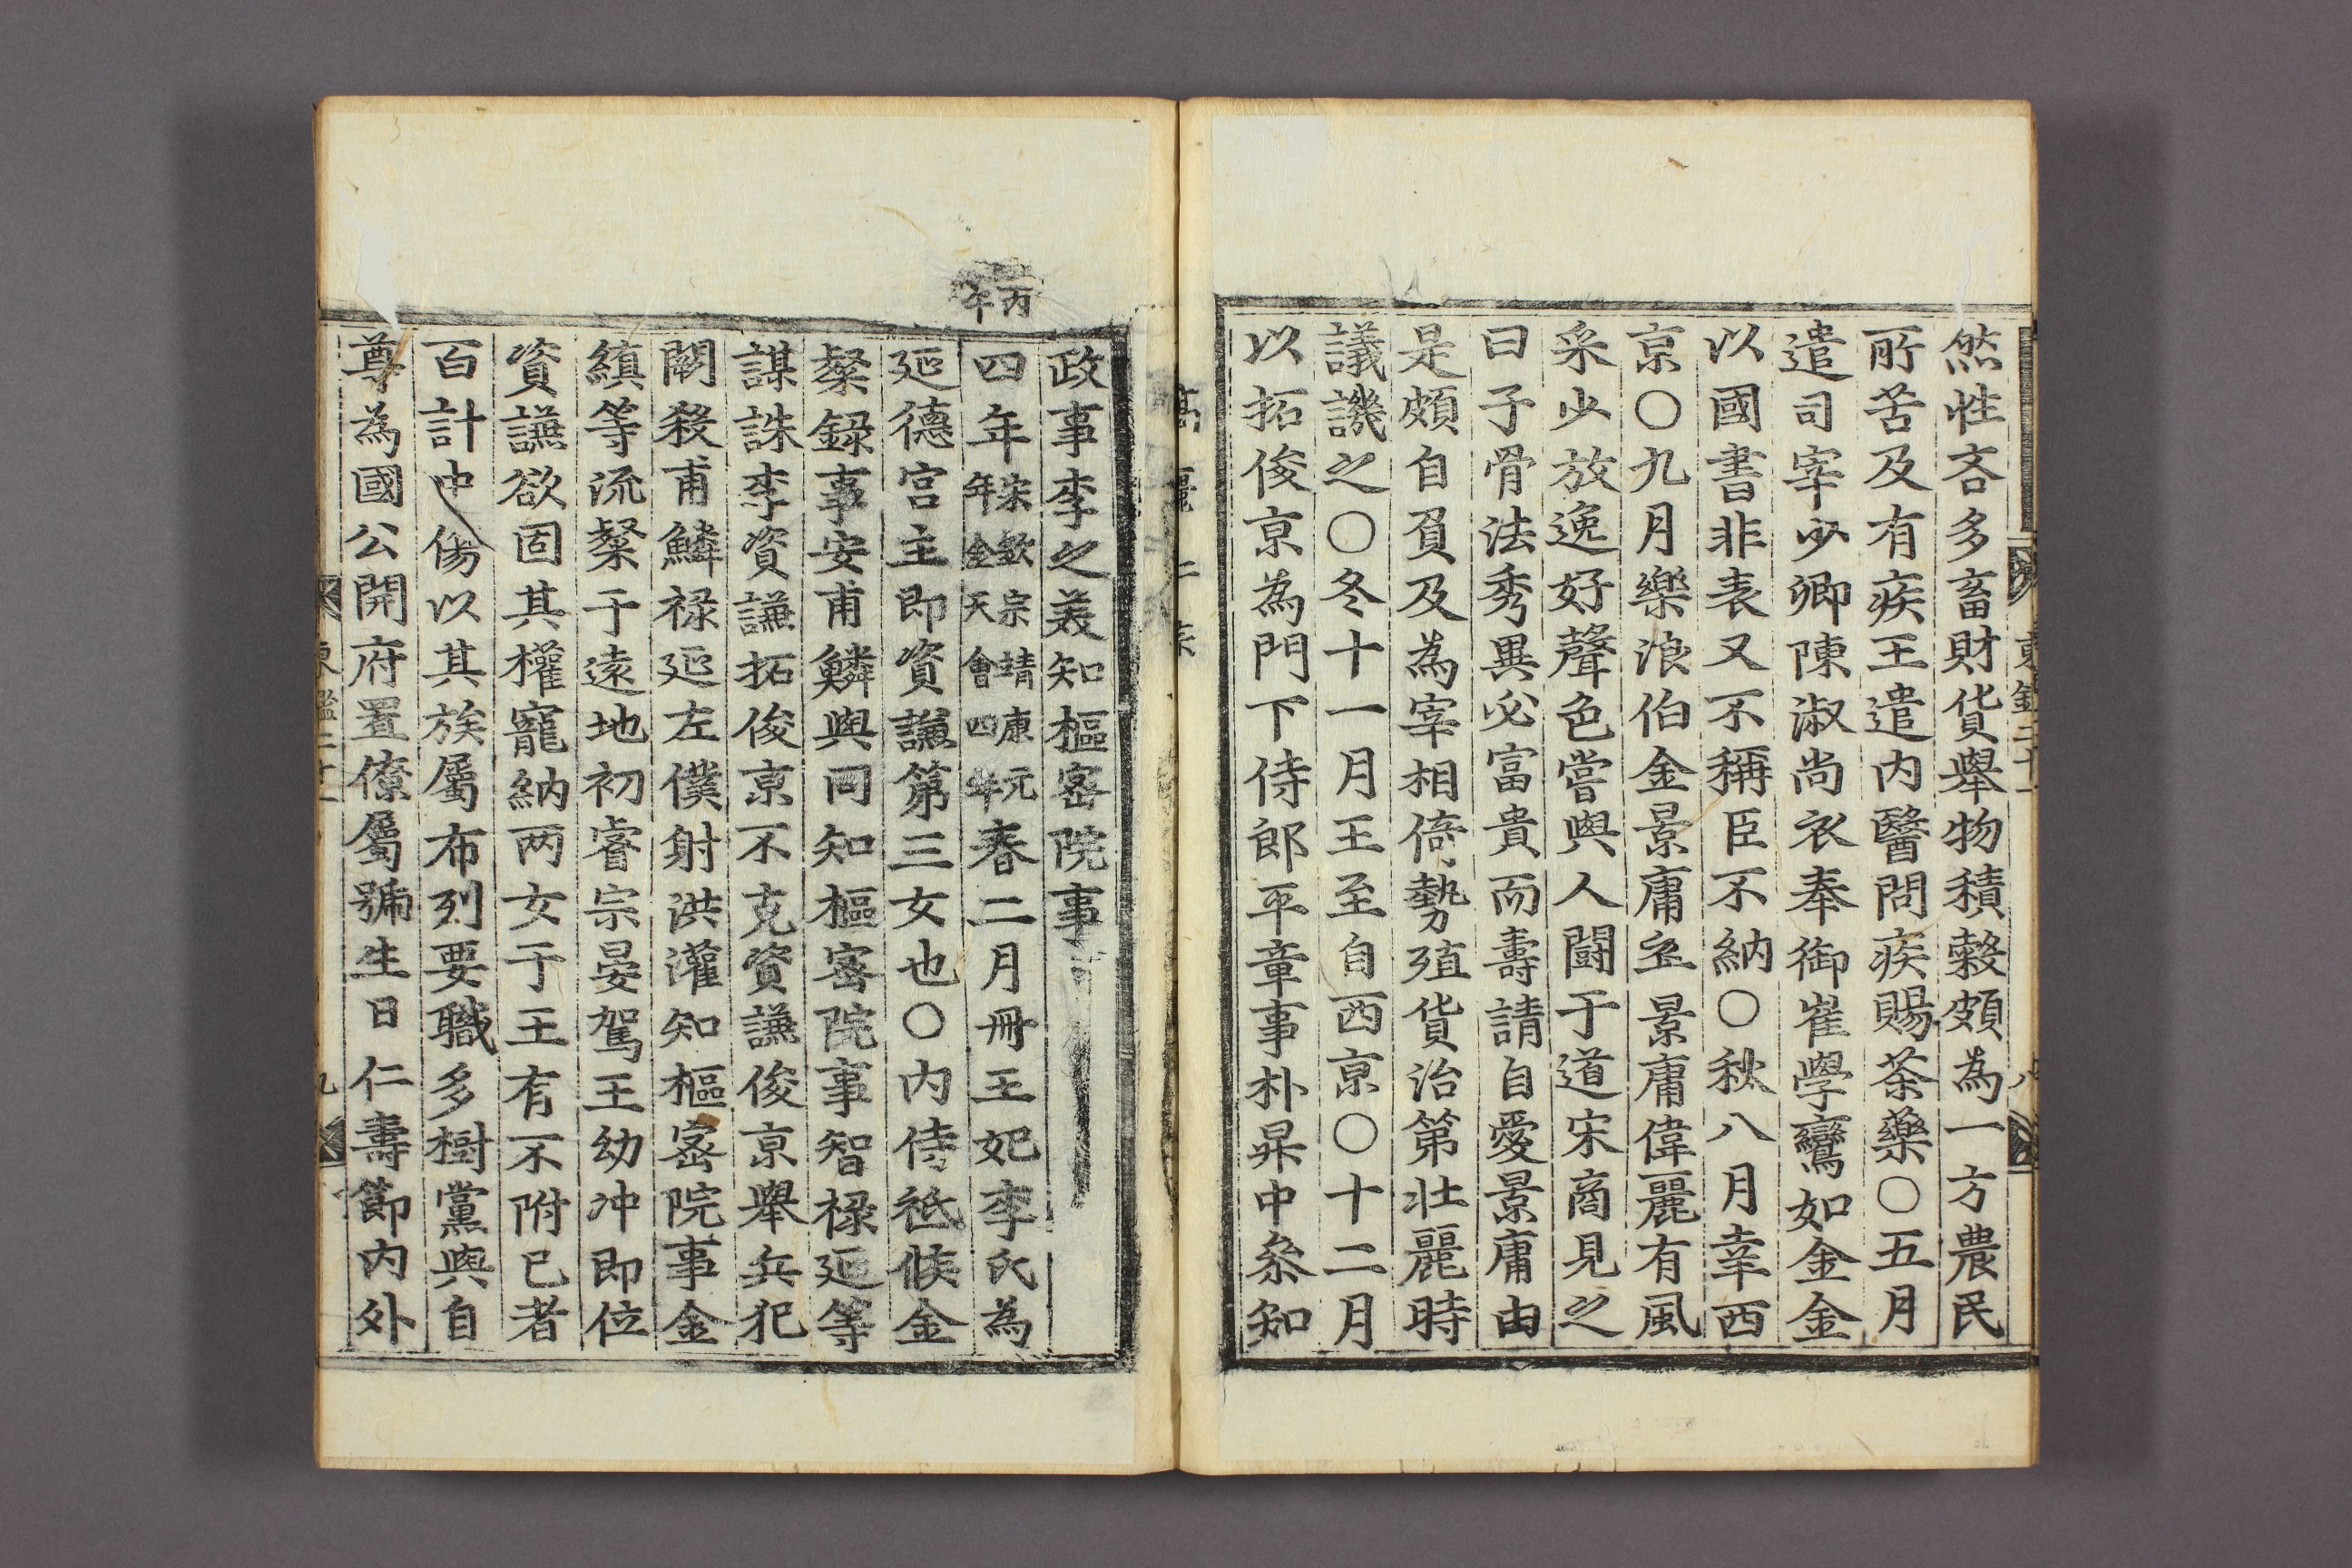 然性吝多畜財貨擧物積糓頗為一方農民
所苦及有疾王遣内醫問疾賜茶藥〇五月
遣司宰少卿陳淑尚衣奉御崔學鸞如金金
以國書非表又不稱臣不納〇秋八月幸西
京〇九月樂浪伯金景庸卒景庸偉麗有風
采少放逸好聲色嘗與人鬪于道宋商見之
曰子骨法秀異必富貴而壽請自愛景庸由
是頗自負及為宰相倚勢殖貨治第壯麗時
議譏之〇冬十一月王至自西京〇十二月
以拓俊京為門下侍郎平章事朴昇中叅知
政事李之美知樞密院事
丙午
四年宋欽宗靖康元年金天會四年春二月冊王妃李氏為
延德宮主即資謙第三女也〇内侍祗候金
粲録事安甫鱗與同知樞密院事智祿延等
謀誅李資謙拓俊京不克資謙俊京擧兵犯
闕殺甫鱗祿延左僕射洪灌知樞密院事金
縝等流粲于遠地初睿宗晏駕王幼冲即位
資謙欲固其權寵納两女于王有不附已者
百計中傷以其族屬布列要職多樹黨與自
尊為國公開府置僚屬號生日仁壽節内外